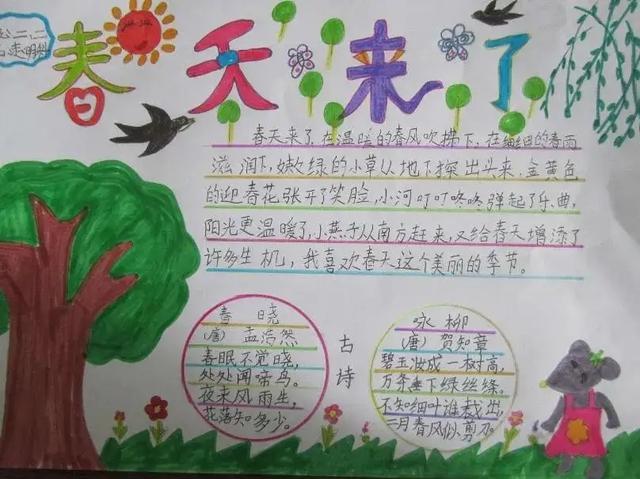 春天来了
春天来了,在温暖的春风吹拂下,在细细的春雨
滋润下,嫩绿的小草从地下探出头来,金黄色
的迎春花张开了笑脸,小河叮叮咚咚弹起了乐曲,
阳光更温暖了,小燕子从南方赶来,又给春天增添了
许多生机,我喜欢春天这个美丽的季节。
春晓
(唐) 孟浩然
春眠不觉晓,
处处闻帝鸟。
夜来风雨生,
花落知多少。
古诗
咏柳
(唐) 贺知章
碧玉妆成一树高,
万条垂下绿丝绦。
不知细叶谁裁出,
二月春风似剪刀。